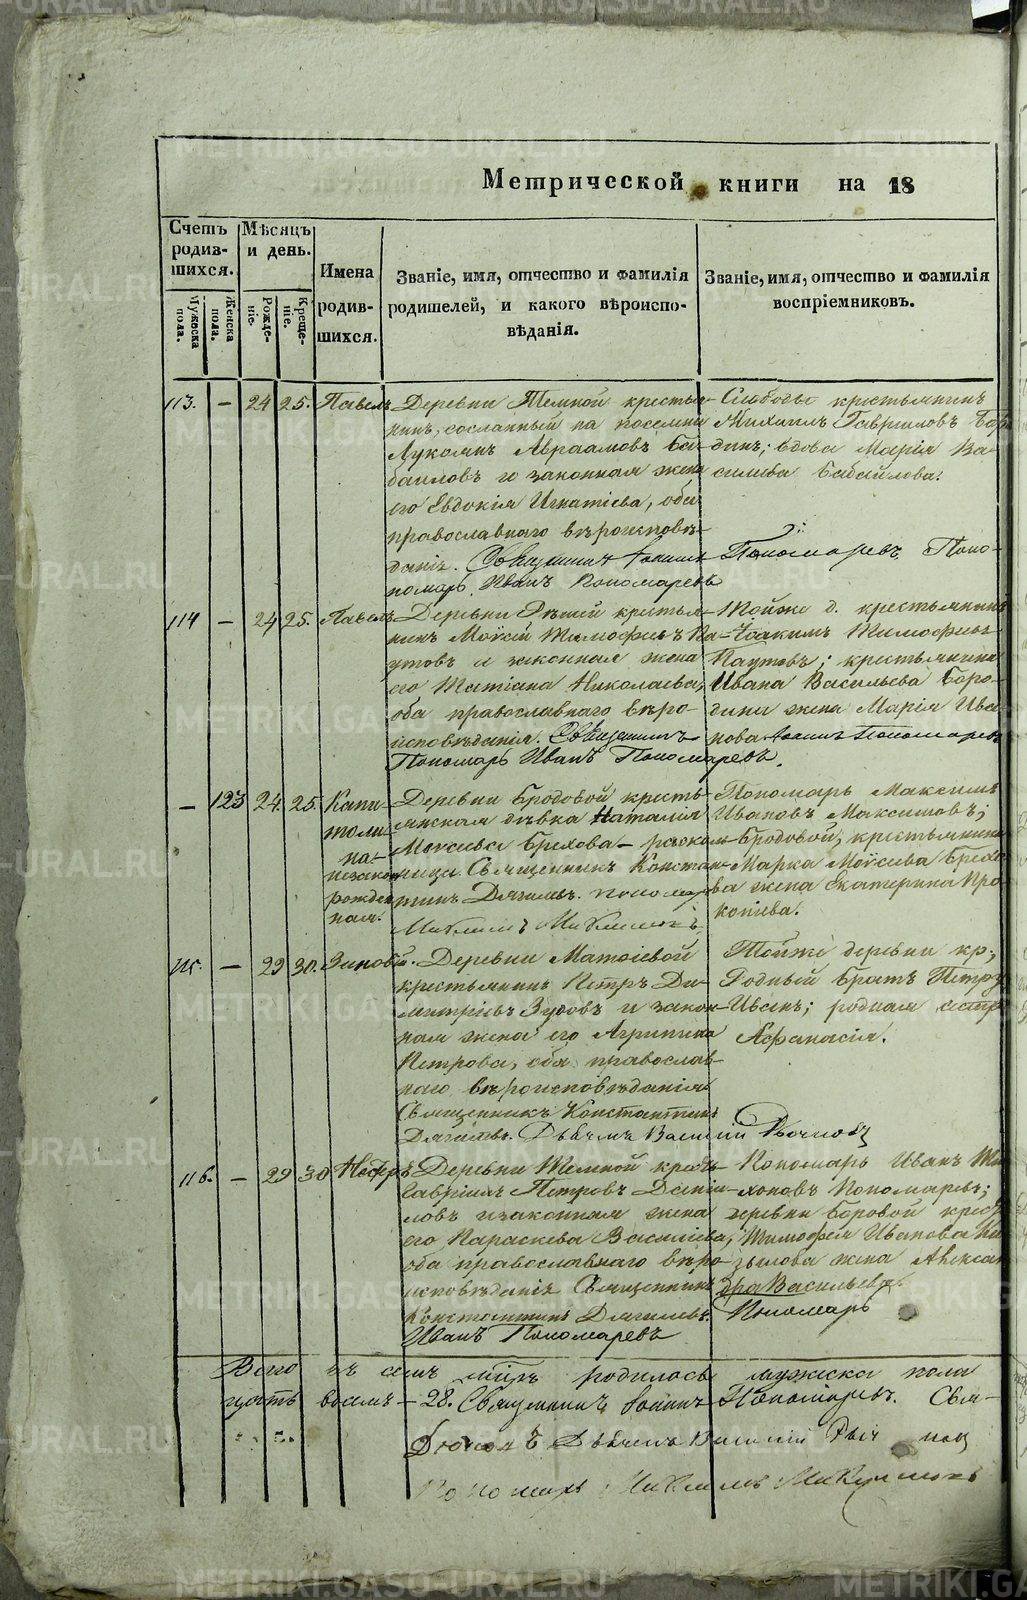 Метрической книги на 18
Счетъ родив-шихся.
Мѣсяцъ и день.
Имена родив-шихся.
Званіе, имя, отчество и фамилія родителей, и какого вѣроиспо-вѣданія.
Званіе, имя, отчество и фамилія воспріемниковъ.
Мужеска пола.
Женска пола.
Рожде-ніе.
Креще-ніе.
113. — 24 25. Павелъ
Деревни Темной крестья-
нинъ, сосланный на поселеніе
Авраамовъ Ба-
баиловъ и законная жена
его Евдокія Игнатіева, оба
православнаго вѣроисповѣ-
данія. Священникъ Іоаннъ Пономаревъ Поно-
марь Иванъ Пономаревъ
Слободы крестьянинъ
Михаилъ Гавриловъ
вдова Марія Ва-
сильева Бабайлова.
114 — 24 25. Павелъ
Деревни крестья-
нинъ Моѵсей Тимофеевъ Па-
утовъ и законная жена
его Татіана Николаева,
оба православнаго вѣро-
исповѣданія. Священникъ Іоаннъ Пономаревъ
Пономарь Иванъ Пономаревъ.
Той же д. крестьянинъ
Іоакимъ Тимофеевъ
Паутовъ; крестьянина
Ивана Васильева Боро-
дина жена Марія Ива-
нова
— 123 24. 25. Капи-
толи-
на-
незакон
рожден
ная.
Деревни Бродовой кресть-
янская дѣвка Наталія
Моѵсеева Брехова —
Священникъ Констан-
тинъ Дягилевъ. пономарь
Пономарь Максимъ
Ивановъ Максимовъ;
Бродовой, крестьянина
Марка Моѵсеева Брехо-
ва жена Екатерина Про-
копіева.
115. — 29 30. Зиновій.
Деревни Матвіевой
крестьянинъ Петръ Ди-
митріевъ Зубовъ и закон-
ная жена его Агрипина
Петрова, оба православ-
наго вѣроисповѣданія
Священникъ Константинъ
Дягилевъ. Дьячекъ Василій
Той же деревни кр.
Родный братъ Петру
Ивенъ; родная сестра
Афанасія.
116. — 29 30
Деревни Темной крест.
Гавріилъ Петровъ Дани-
ловъ и законная жена
его Параскева Василіева,
оба православнаго вѣро-
исповѣданія Священникъ
Константинъ Дягилевъ. Пономарь
Иванъ Пономаревъ
Пономарь Иванъ Ти-
хоновъ Пономаревъ;
деревни Боровой крест.
Тимофея Иванова
жена Александра
Васильева.
Всего въ семъ родилось мужеска пола
восемь — 28. Священникъ Іоаннъ Пономаревъ. Свя-
Дьячекъ Василій
Пономарь
METRIKI.GASO-URAL.RU